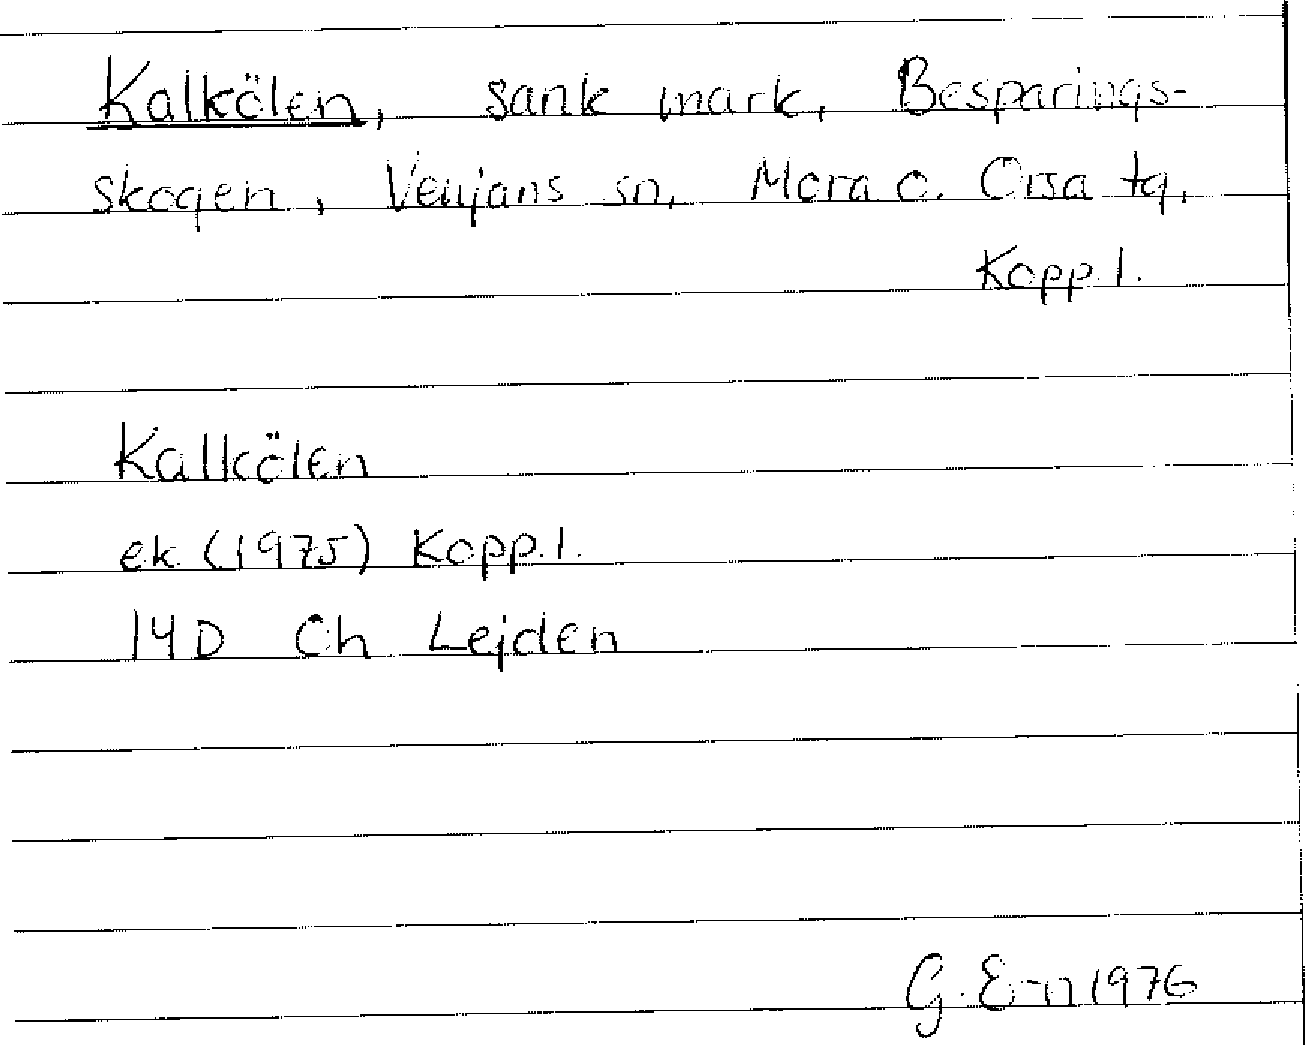 Kalkölen, sank mark, Besparings-
skogen, Venjans sn, Mora o. Orsa tg,
Kopp. l.
Kalkölen
ek (1975) Kopp. l.
14D Ch Lejden
G. E-n 1976